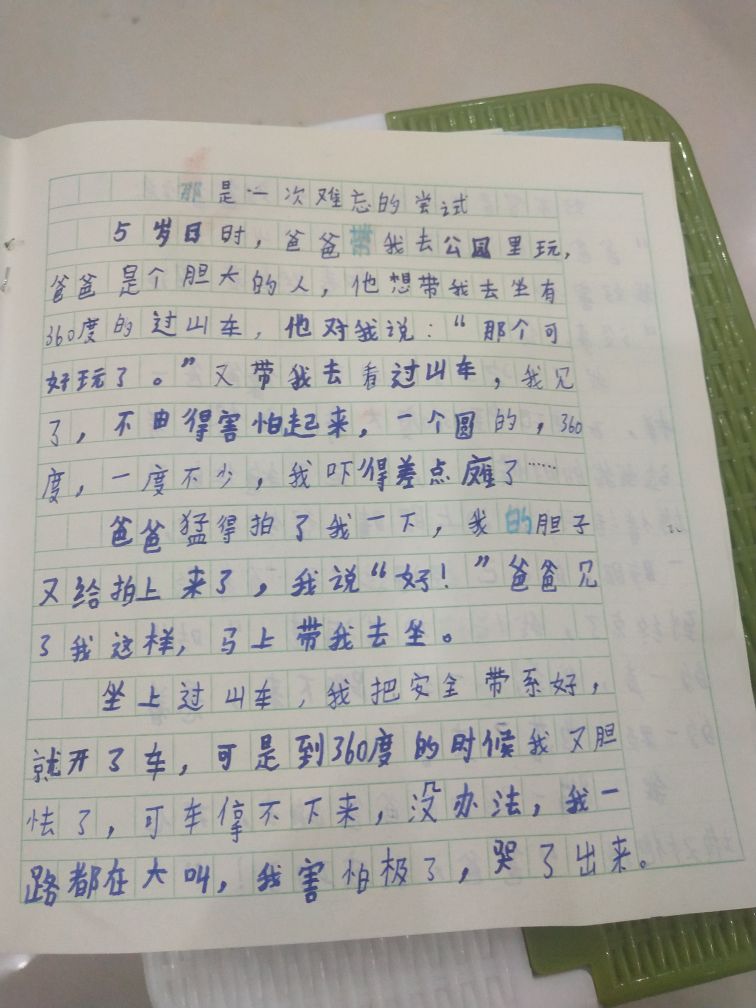 那是一次难忘的尝试
5岁日时，爸爸带我去公园里玩，
爸爸是个胆大的人，他想带我去坐有
360度的过山车，他对我说：“那个可
好玩了。”又带我去看过山车，我见
了，不由得害怕起来，一个圆的，360
度，一度不少，我吓得差点瘫了……
爸爸猛得拍了我一下，我的胆子
又给拍上来了，我说“好！”爸爸见
了我这样，马上带我去坐。
坐上过山车，我把安全带系好，
就开了车，可是到360度的时候我又胆
怯了，可车停不下来，没办法，我一
路都在大叫，我害怕极了，哭了出来。